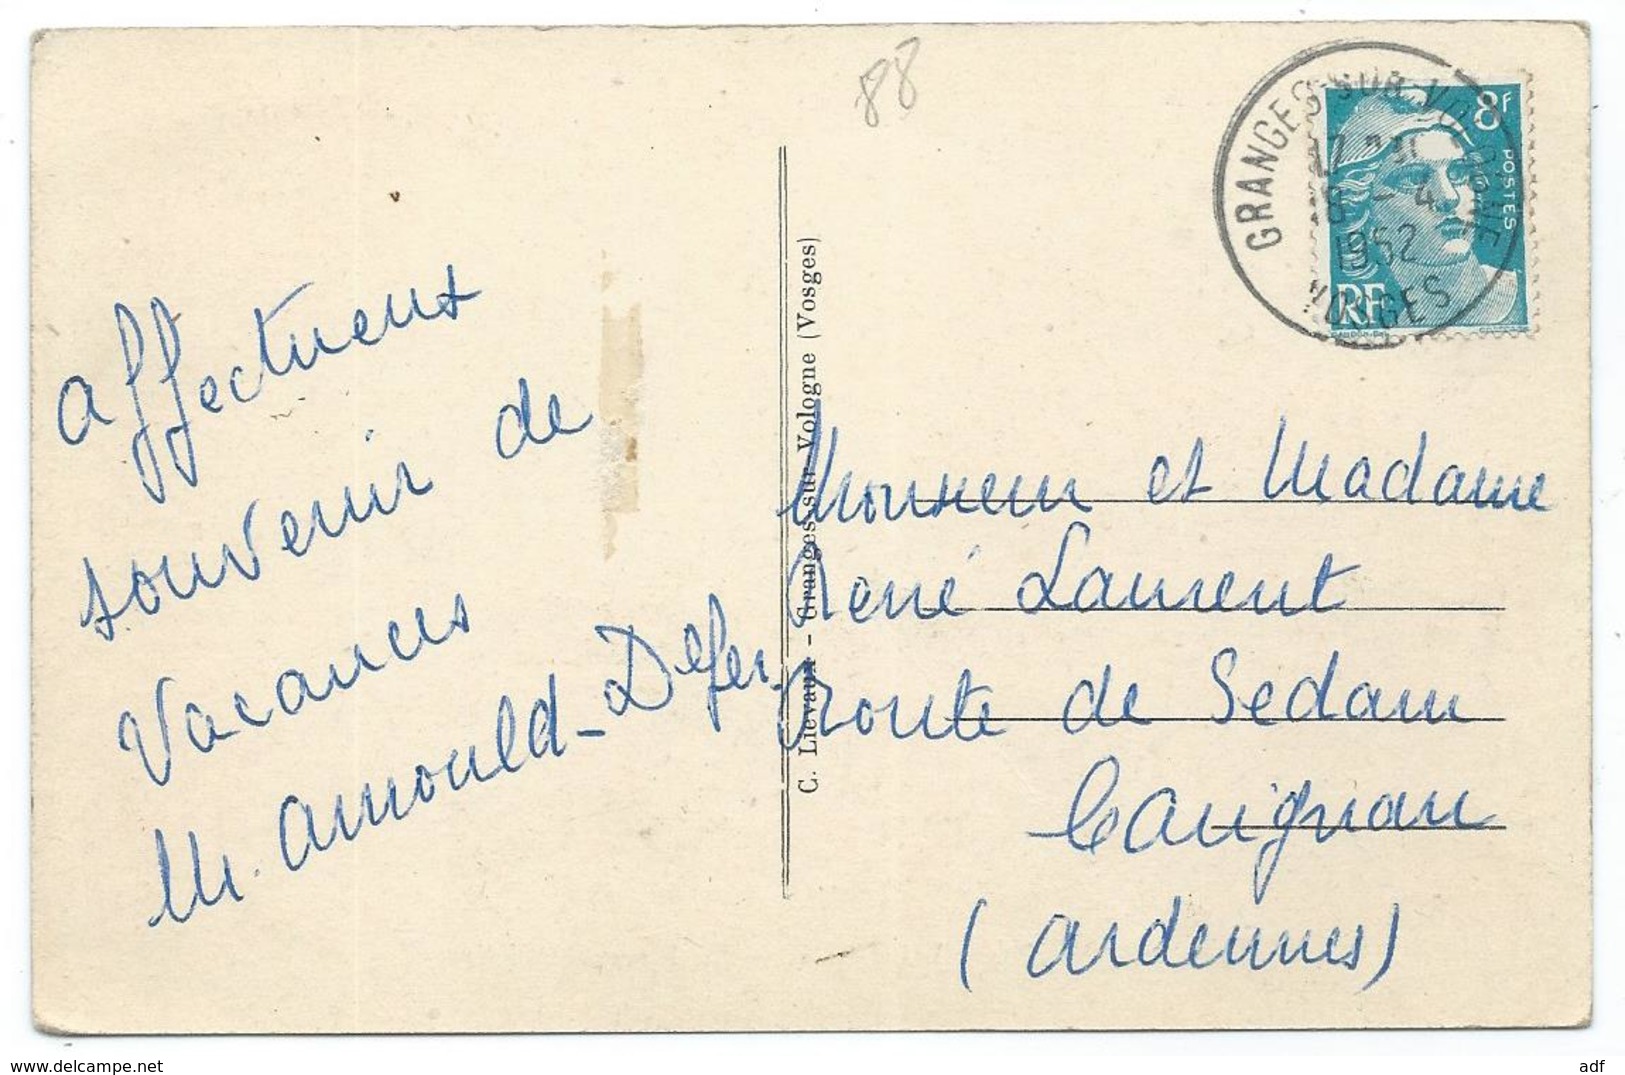 88
GRANGES-SUR-VOLOGNE
17
1952
VOSGES
8F
POSTES
RF
affectueux
souvenir de
vacances
M. Arnould-
C. Lievaux - Granges-sur-Vologne (Vosges)
Monsieur et Madame
René Laurent
route de Sedan
Carignan
(Ardennes)
adf